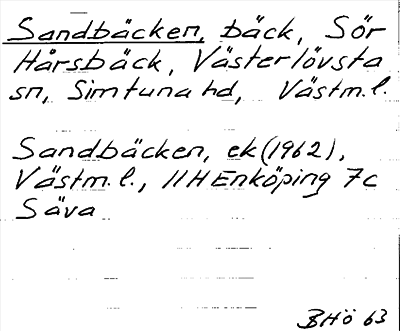 Sandbäcken, bäck, Sör
Hårsbäck, Västerlövsta
sn, Simtuna hd, Västm.l.
Sandbäcken, ek (1962),
Västm.l., 11H Enköping 7c
Säva
BHÖ 63